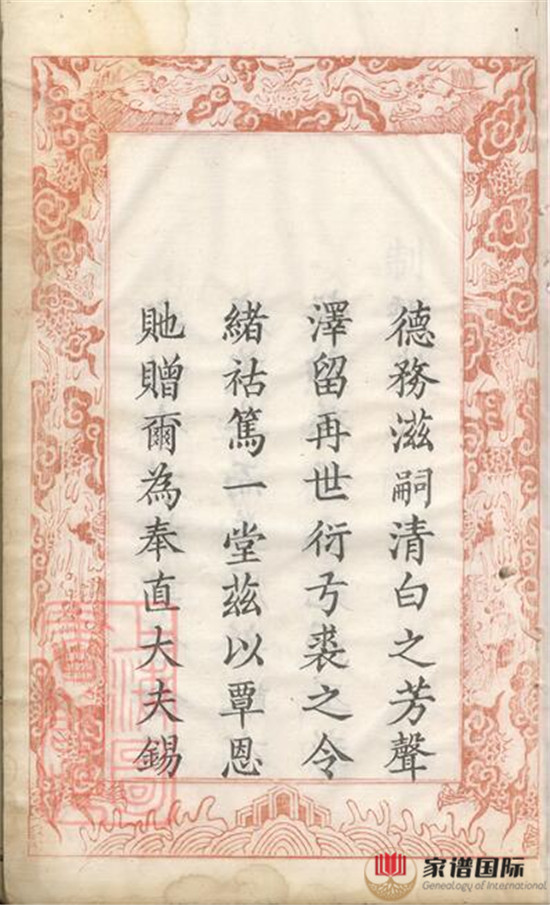 德務滋嗣清白之芳聲
澤留再世衍弓裘之令
緒祜篤一堂茲以覃恩
貤贈爾為奉直大夫錫
家谱国际
Genealogy of International